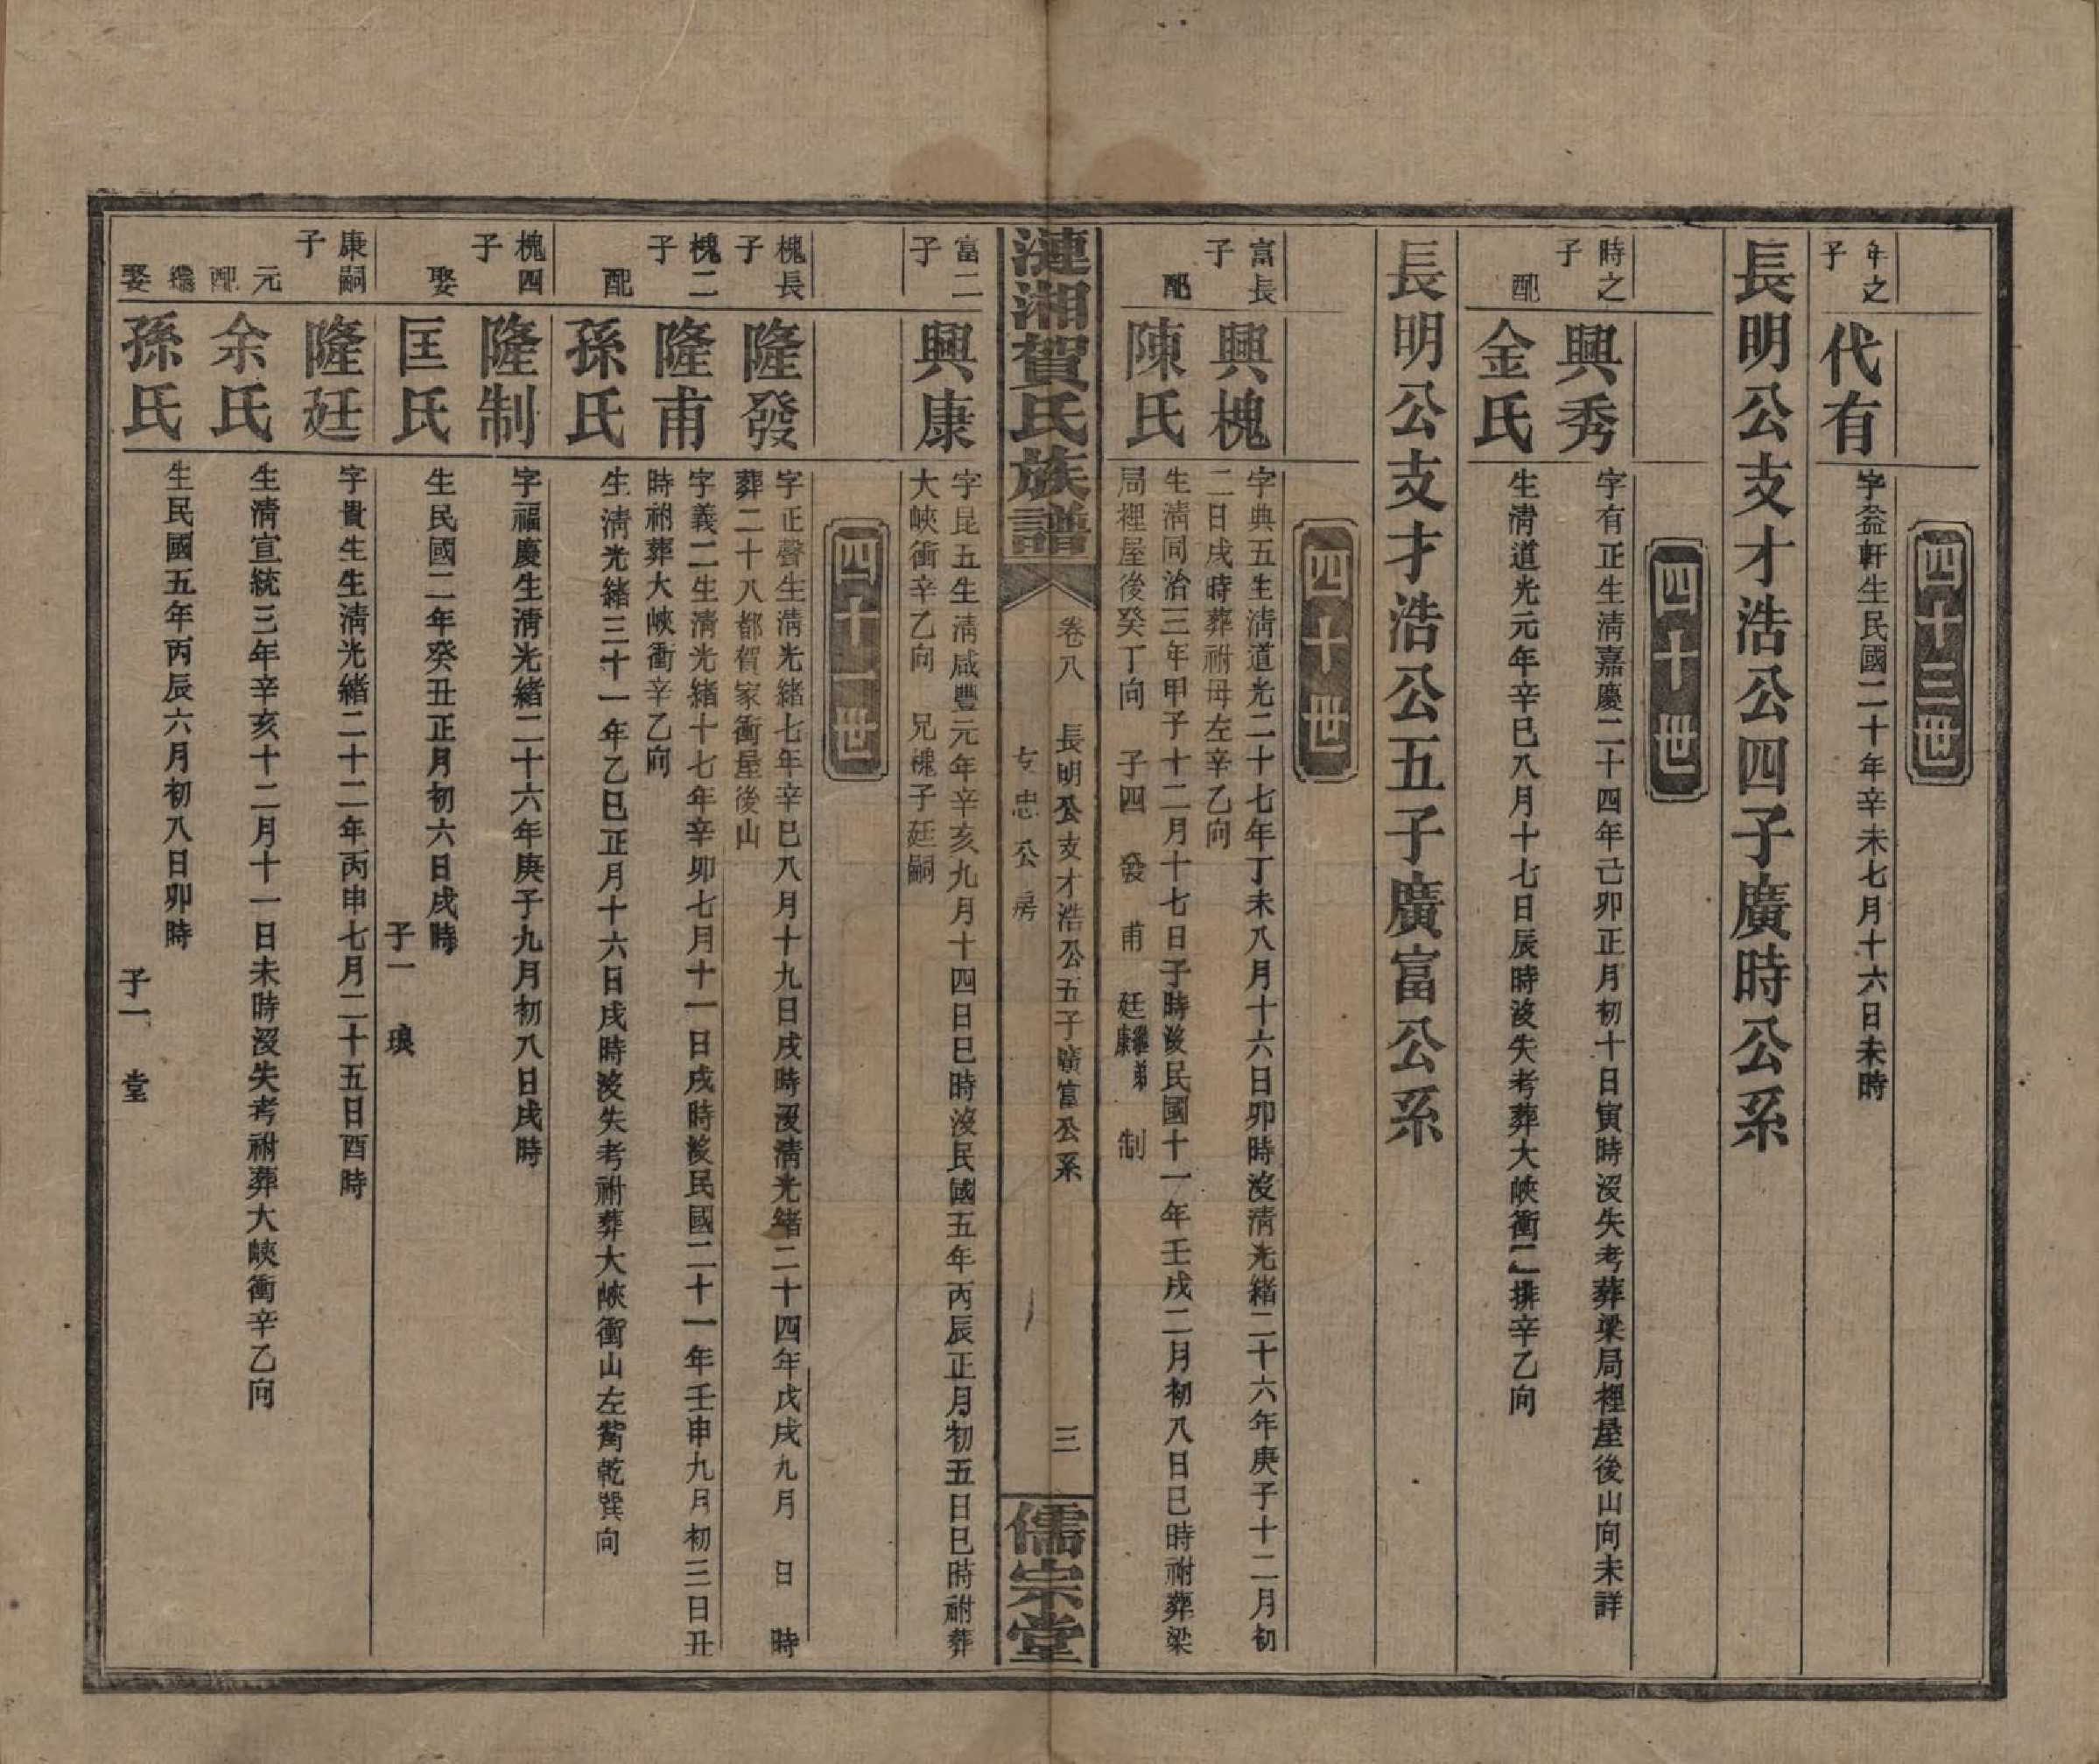 四十三世
年之子
代有
字益軒生民國二十年辛未七月十六日未時
長明公支才浩公四子廣時公系
四十世
時之子
興秀
字有正生清嘉慶二十四年己卯正月初十日寅時沒失考葬梁局裡屋後山向未詳
配
金氏
生清道光元年辛巳八月十七日辰時沒失考葬大峽衝二排辛乙向
長明公支才浩公五子廣富公系
四十世
富長子
興槐
字典五生清道光二十七年丁未八月十六日卯時沒清光緒二十六年庚子十二月初
二日戌時葬祔母左辛乙向
配
陳氏
生清同治三年甲子十二月十七日子時沒民國十一年壬戌二月初八日巳時祔葬梁
局裡屋後癸丁向 子四 發 甫 廷繼弟康 制
漣湘賀氏族譜
卷八 長明公支才浩公五子廣富公系 三
友忠公房
儒宗堂
富二子
興康
字昆五生清咸豐元年辛亥九月十四日巳時沒民國五年丙辰正月初五日巳時祔葬
大峽衝辛乙向 兄槐子廷嗣
四十一世
槐長子
隆發
字正聲生清光緒七年辛巳八月十九日戌時沒清光緒二十四年戊戌九月 日 時
葬二十八都賀家衝屋後山
槐二子
隆甫
字義二生清光緒十七年辛卯七月十一日戌時沒民國二十一年壬申九月初三日丑
時祔葬大峽衝辛乙向
配
孫氏
生清光緒三十一年乙巳正月十六日戌時沒失考祔葬大峽衝山左嘴乾巽向
槐四子
隆制
字福慶生清光緒二十六年庚子九月初八日戌時
娶
匡氏
生民國二年癸丑正月初六日戌時
子一 瑱
康嗣子
隆廷
字貴生生清光緒二十二年丙申七月二十五日酉時
元配
余氏
生清宣統三年辛亥十二月十一日未時沒失考祔葬大峽衝辛乙向
繼娶
孫氏
生民國五年丙辰六月初八日卯時
子一 堂